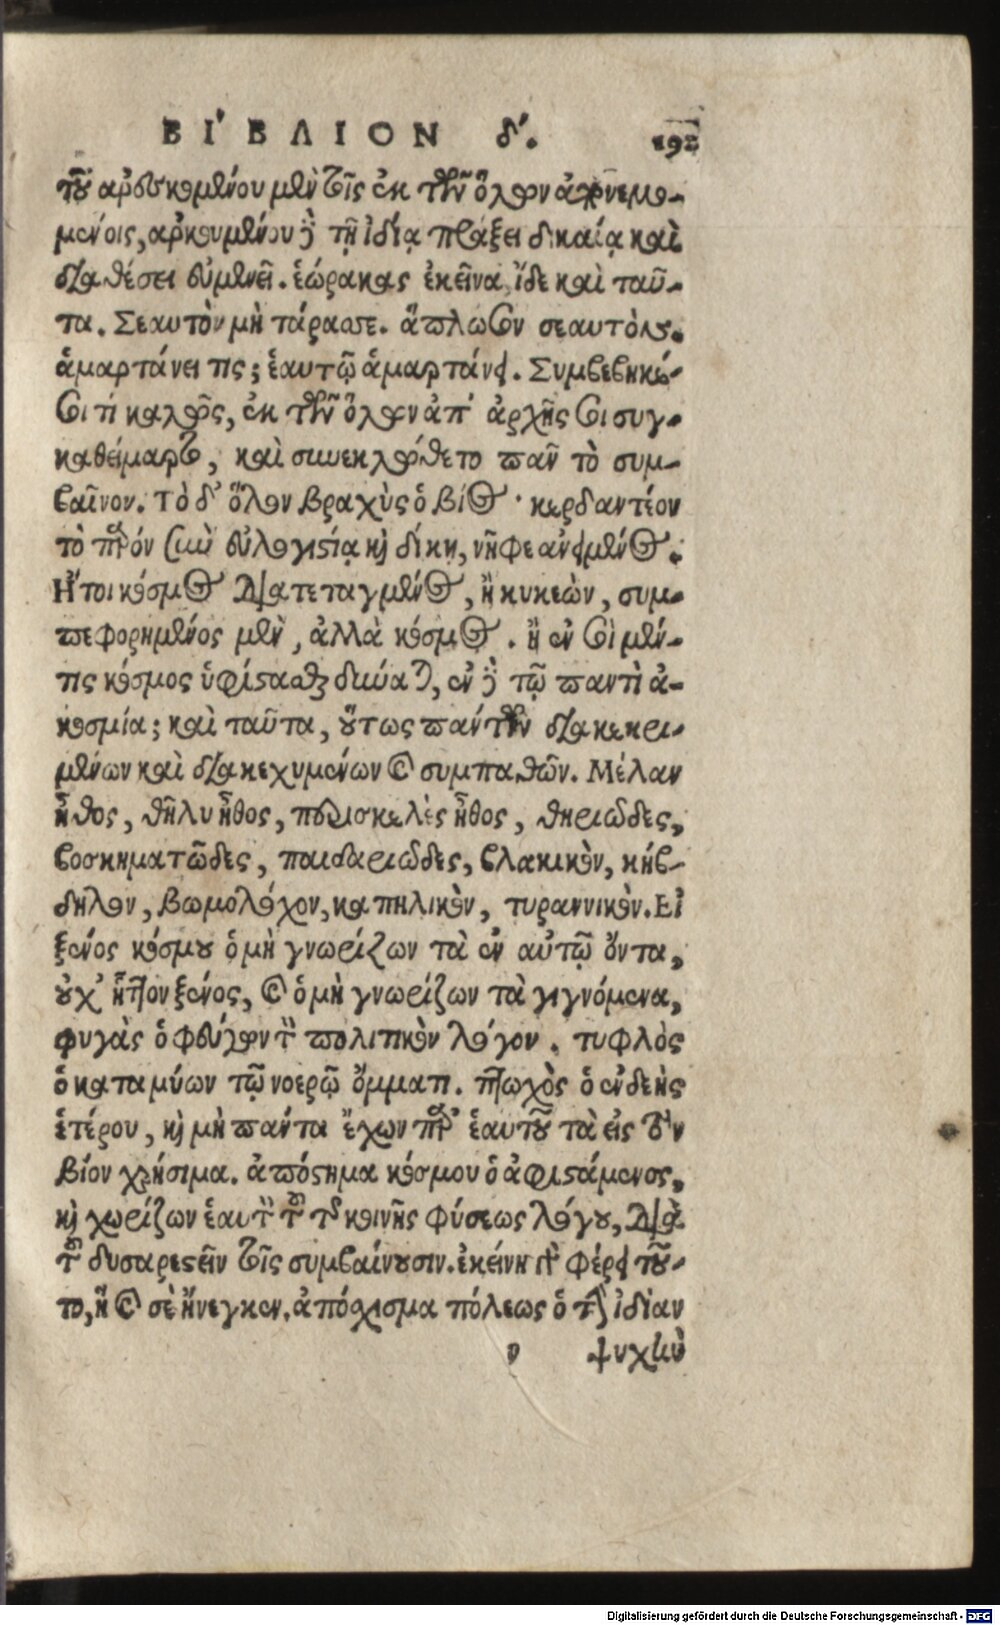 ΒΙ´ΒΛΙΟΝ δ´. 192
τοῦ ἀρεσκομένου μὲν τοῖς ἐκ τῶν ὅλων ἀπονεμο-
μένοις, ἀρκουμένου δὲ τῇ ἰδίᾳ πράξει δικαίᾳ καὶ
διαθέσει εὐμενεῖ. ἑώρακας ἐκεῖνα, ἴδε καὶ ταῦ-
τα. Σεαυτὸν μὴ τάρασσε. ἅπλωσον σεαυτόν.
ἁμαρτάνει τις; ἑαυτῷ ἁμαρτάνει. Συμβεβηκέ
σοι τί καλῶς, ἐκ τῶν ὅλων ἀπ' ἀρχῆς σοι συγ-
καθείμαρτο, καὶ συνεκλώθετο πᾶν τὸ συμ-
βαῖνον. Τὸ δ' ὅλον βραχὺς ὁ βίος· κερδαντέον
τὸ παρόν σὺν εὐλογιστίᾳ καὶ δίκῃ, νῆφε ἀνειμένος.
Ἤτοι κόσμος διατεταγμένος, ἢ κυκεών, συμ-
πεφορημένος μὲν, ἀλλὰ κόσμος. ἢ ἐν σοὶ μέν-
τις κόσμος ὑφίστασθαι δύναται, ἐν δὲ τῷ παντὶ ἀ-
κοσμία; καὶ ταῦτα, οὕτως πάντων διακεκρι-
μένων καὶ διακεχυμένων καὶ συμπαθῶν. Μέλαν
ἦθος, θῆλυ ἦθος, περισκελὲς ἦθος, θηριῶδες,
βοσκηματῶδες, παιδαριῶδες, βλακικὸν, κήβ-
δηλον, βωμολόχον, καπηλικὸν, τυραννικόν. Εἰ
ξένος κόσμου ὁ μὴ γνωρίζων τὰ ἐν αὐτῷ ὄντα,
οὐχ' ἧττον ξένος, καὶ ὁ μὴ γνωρίζων τὰ γιγνόμενα,
φυγὰς ὁ φεύγων τὸν πολιτικὸν λόγον. τυφλὸς
ὁ καταμύων τῷ νοερῷ ὄμματι. πτωχὸς ὁ ἐνδεὴς
ἑτέρου, καὶ μὴ πάντα ἔχων παρ' ἑαυτοῦ τὰ εἰς τὸν
βίον χρήσιμα. ἀπόστημα κόσμου ὁ ἀφιστάμενος,
καὶ χωρίζων ἑαυτὸν τοῦ τῆς κοινῆς φύσεως λόγου, διὰ
τοῦ δυσαρεστεῖν τοῖς συμβαίνουσιν. ἐκείνη γὰρ φέρει τοῦ-
το, ἣ καὶ σὲ ἤνεγκεν. ἀπόσχισμα πόλεως ὁ τὴν ἰδίαν
ψυχὴν